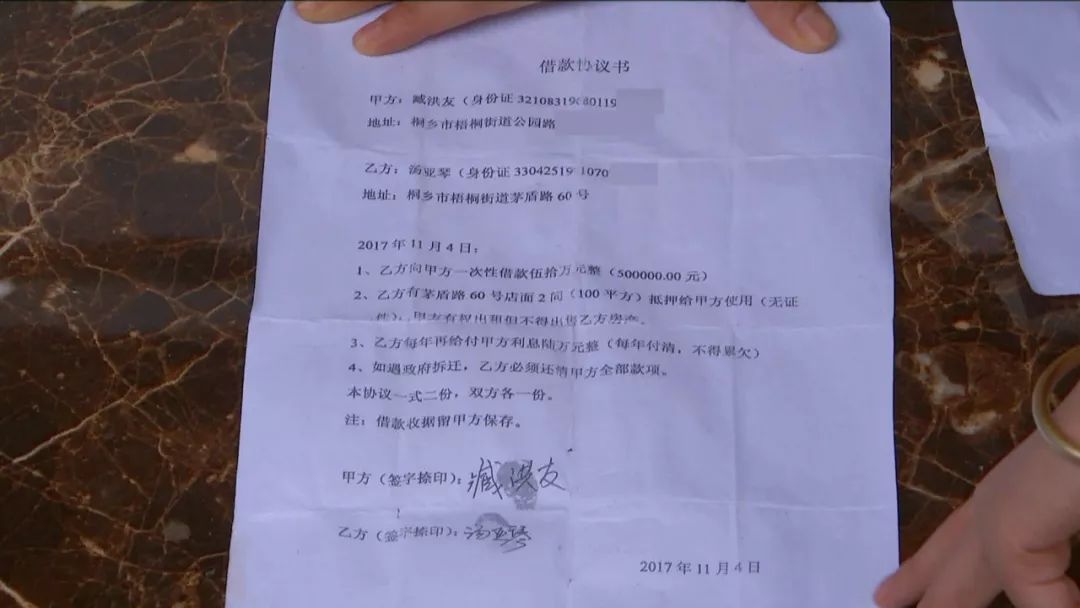 借款协议书
甲方：臧洪友（身份证 32108319680119
地址：桐乡市梧桐街道公园路
乙方：汤亚琴（身份证 3304251971070
地址：桐乡市梧桐街道茅盾路 60 号
2017 年 11 月 4 日：
1、乙方向甲方一次性借款伍拾万元整（500000.00 元）
2、乙方有茅盾路 60 号店面 2 间（100 平方）抵押给甲方使用（无证
件）；甲方有权出租但不得出售乙方房产。
3、乙方每年再给付甲方利息陆万元整（每年付清，不得累欠）
4、如遇政府拆迁，乙方必须还清甲方全部款项。
本协议一式二份，双方各一份。
注：借款收据留甲方保存。
甲方（签字捺印）：臧洪友
乙方（签字捺印）：汤亚琴
2017 年 11 月 4 日